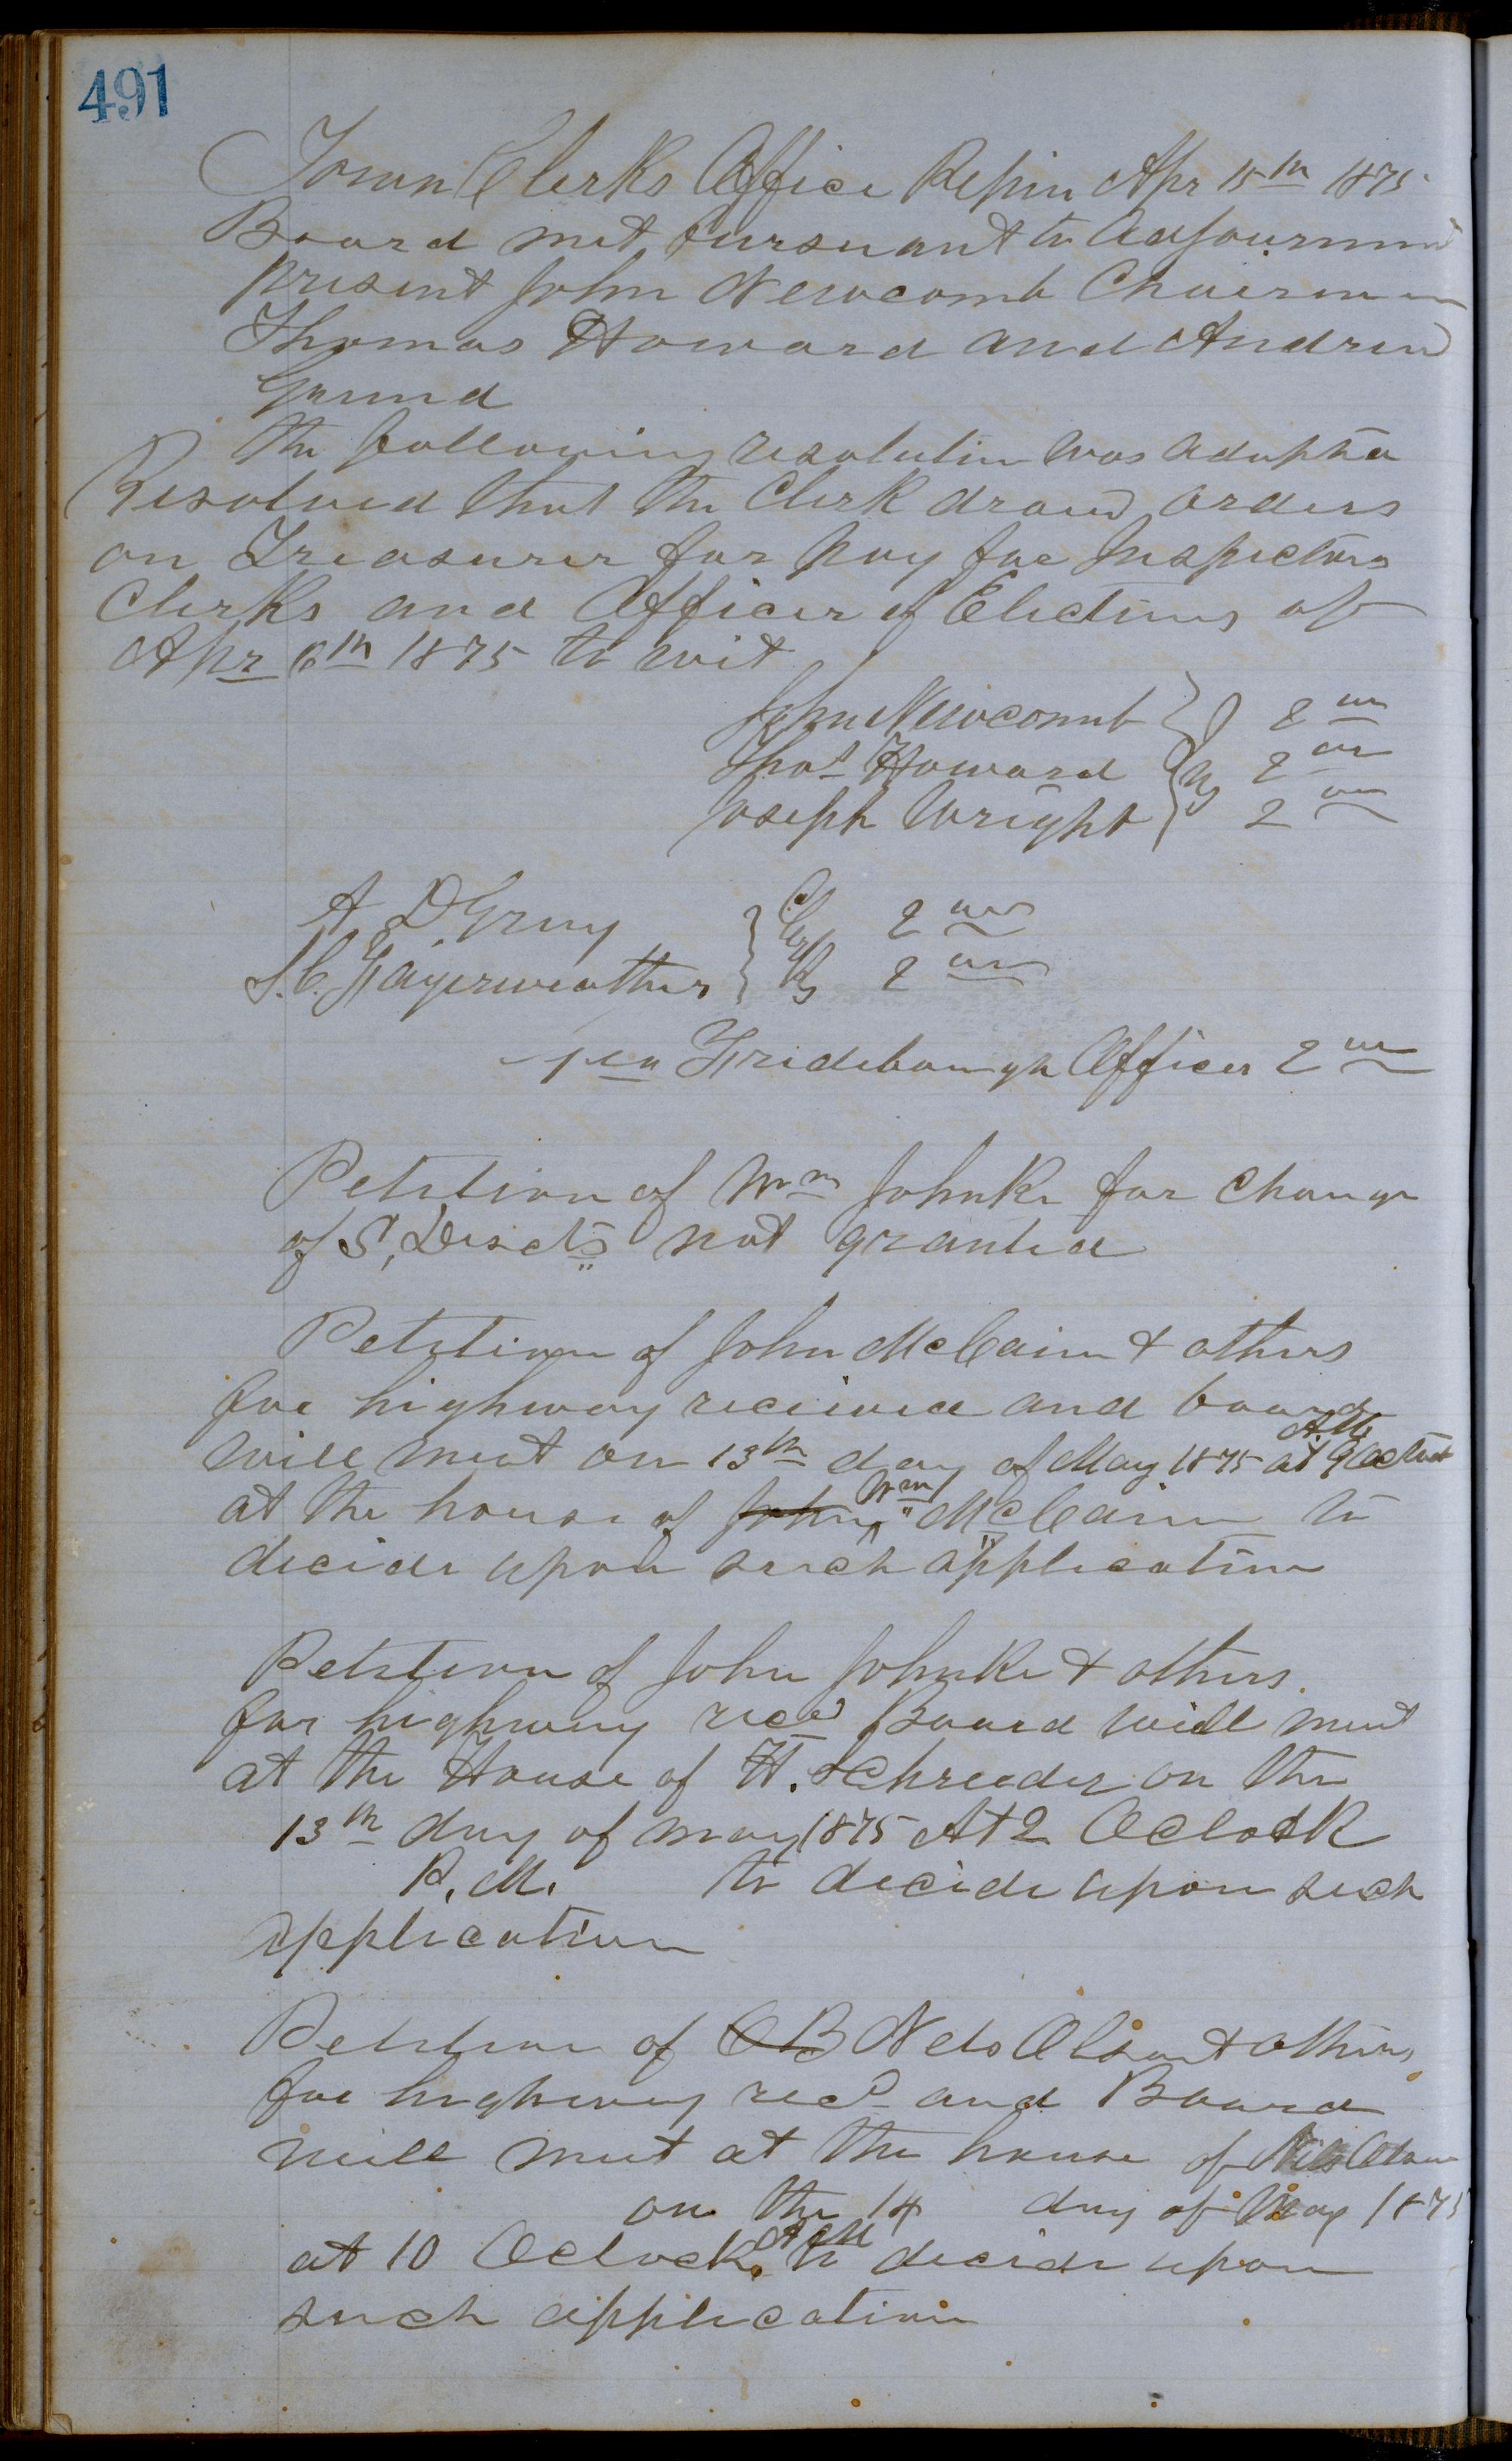 491
Town Clerks Office Pepin Apr 15th 1875
Board met pursuant to Adjournment
present John Newcomb Chairman
Thomas Howard and Andrew
Grund
the following resolution was adopted
Resolved that the Clerk draw orders
on Treasurer for pay for Inspectors
Clerks and Officer of Elections of
Apr 6th 1875 to wit
John Newcomb 2 00
Thos Howard 2 00
Joseph Wright 2 00
A D Gray Clerks 2 00
S. C. Fayerweather 2 00
Fridebaugh Officer 2 00
Petition of Wm Johnke for change
of S, Disets not granted
Petition of John McCain & others
for highway received and board
will meet on 13th day of May 1875 at 9 Oclock A.M.
at the house of John Wm McCain to
decide upon such application
Petition of John Johnke & others
for highway recd Board will meet
at the House of H. Schreeder on the
13th day of may 1875 At 2 OClock
P. M. to decide upon such
application
Petition of OB Nels Olson & others
for highway recd and Board
will meet at the house of Nels Olson
on the 14 day of May 1875
at 10 Oclock A M to decide upon
such application